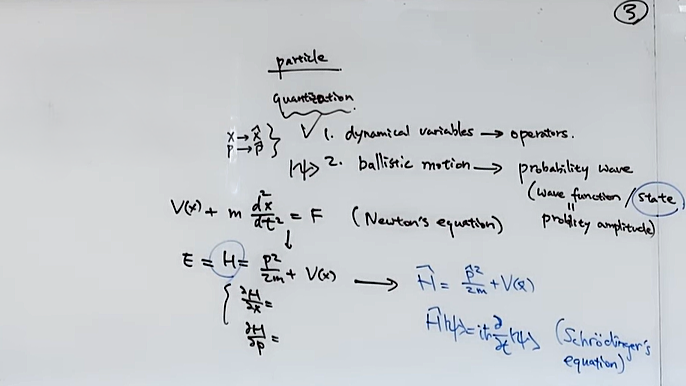 3
particle
quantization
x → x̂
p → p̂
1. dynamical variables → operators.
|ψ> 2. ballistic motion → probability wave
(wave function / state
"
problity amplitude)
V(x) + m d²x/dt² = F (Newton's equation)
↓
E = H = p²/2m + V(x) → Ĥ = p̂²/2m + V(x̂)
∂H/∂x =
∂H/∂p =
Ĥ|ψ> = iħ ∂/∂t |ψ> (Schrödinger's
equation)